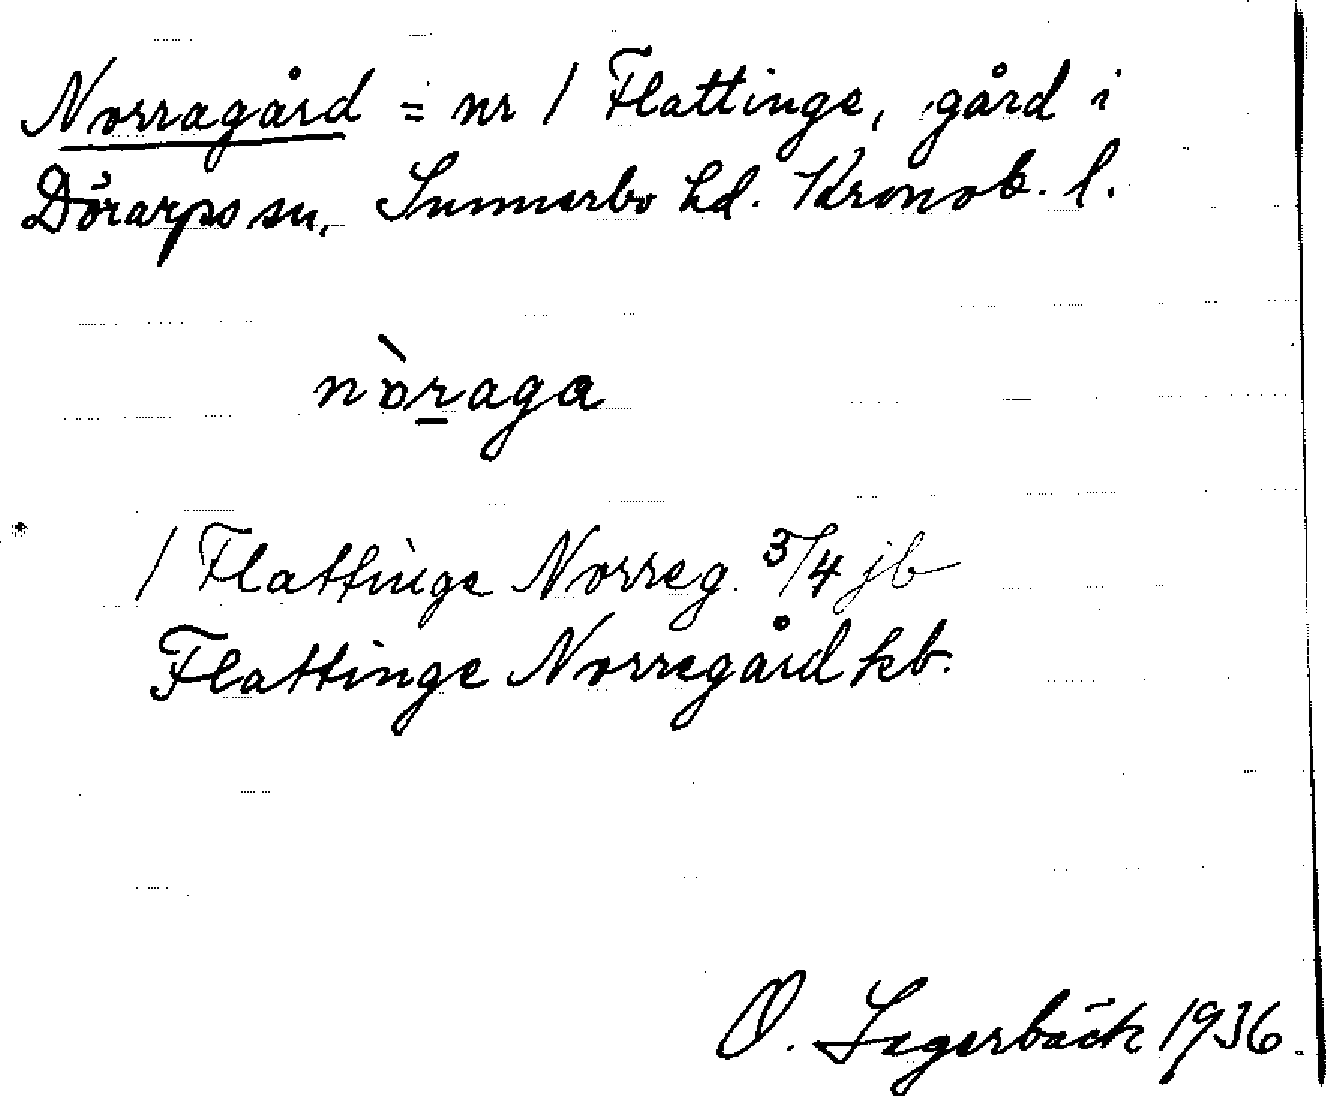 Norragård = nr 1 Flattinge, gård i
Dörarps sn, Sunnerbo hd. Kronob. l.
nòraga
1 Flattinge Norreg. 3/4 jb
Flattinge Norregård kb.
O. Lagerbäck 1936